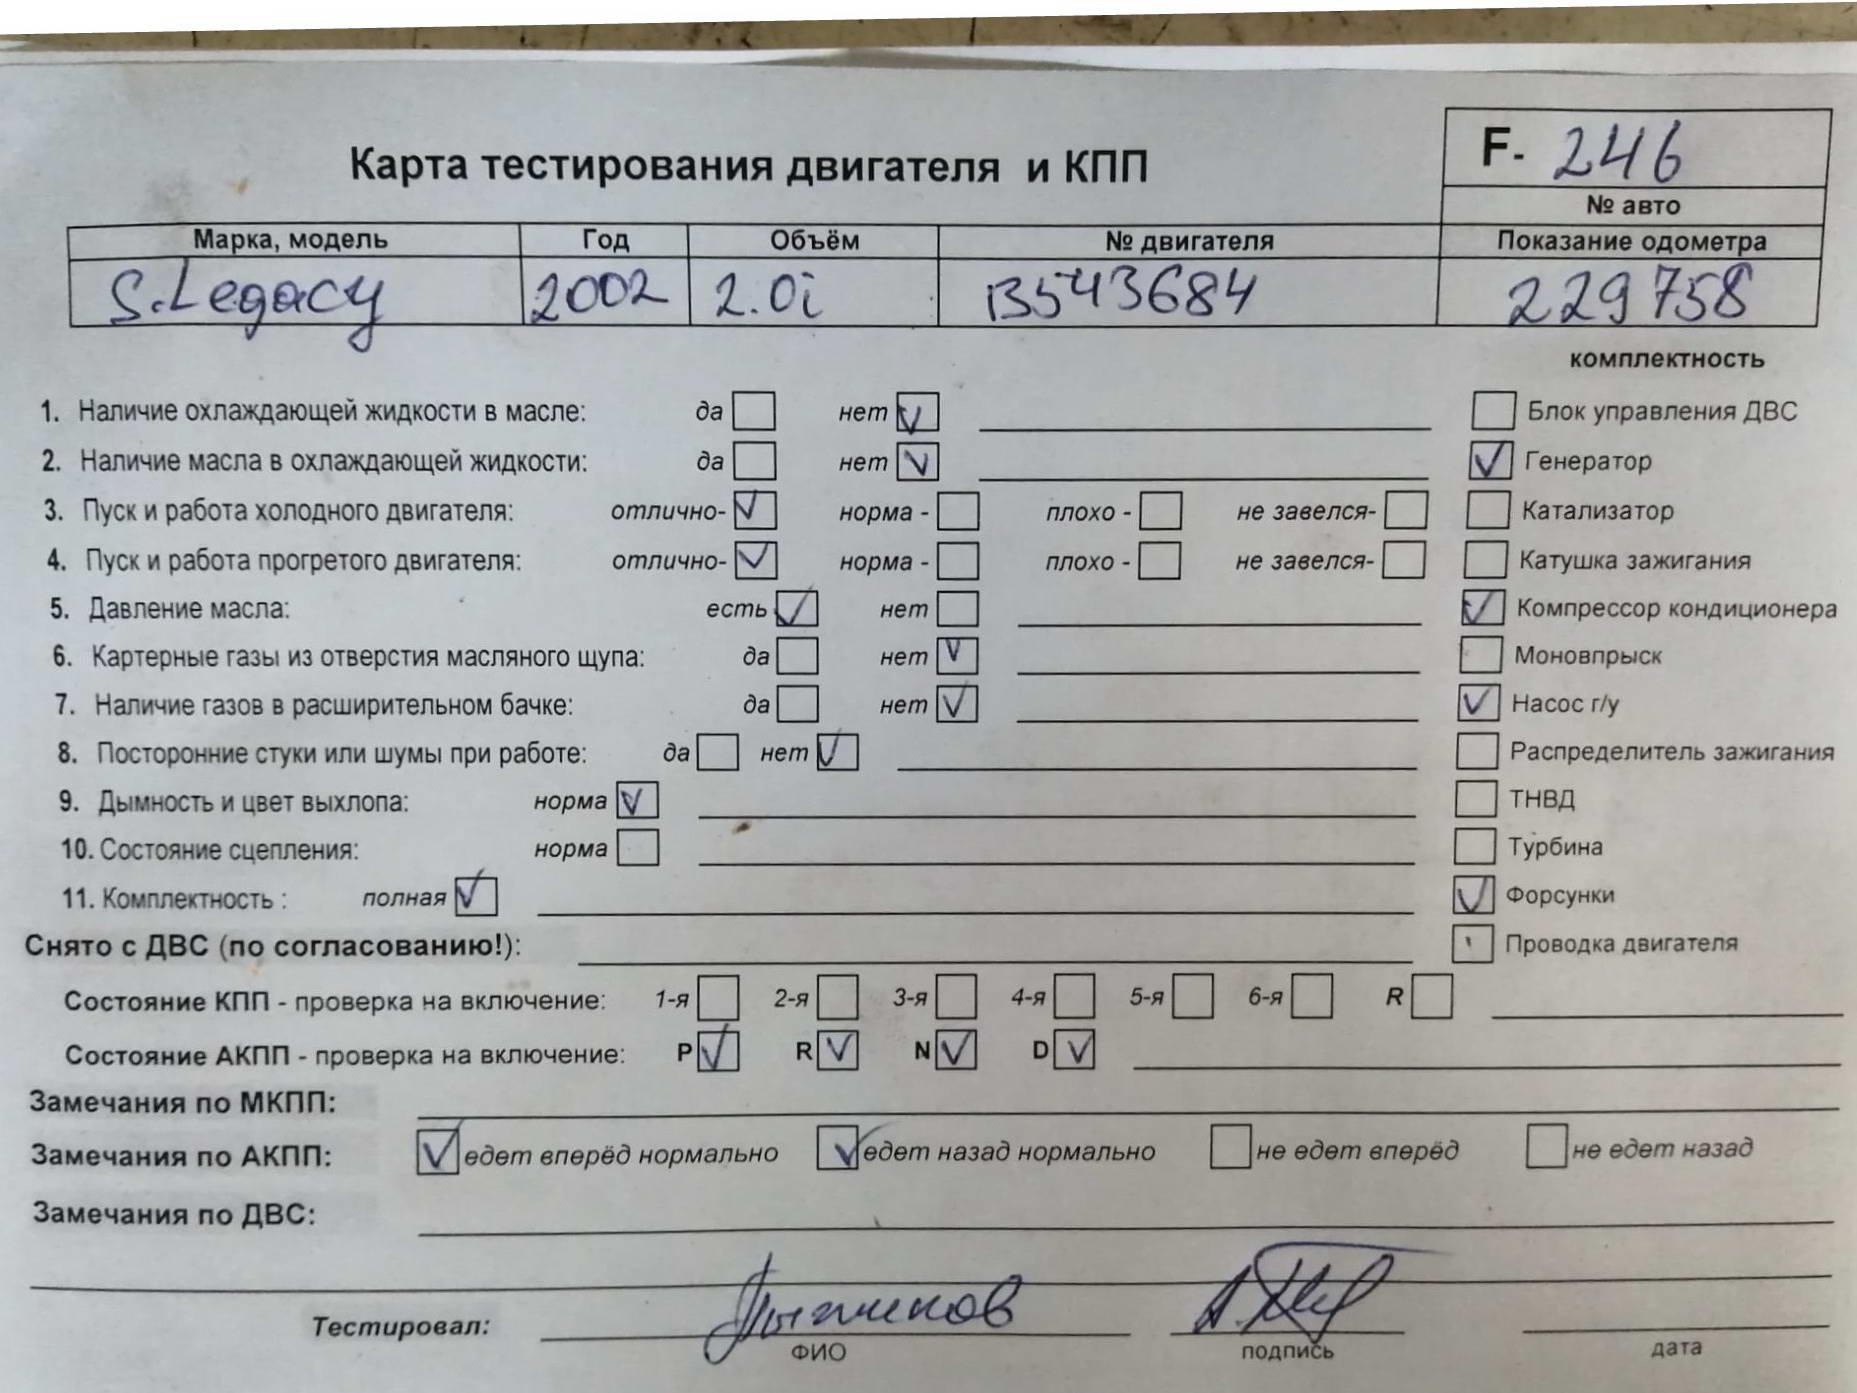 F- 246
Карта тестирования двигателя и КПП
№ авто
Марка, модель Год Объём № двигателя Показание одометра
S.Legacy 2002 2.0i B543684 229758
комплектность
1. Наличие охлаждающей жидкости в масле: да нет Блок управления ДВС
2. Наличие масла в охлаждающей жидкости: да нет Генератор
3. Пуск и работа холодного двигателя: отлично- норма - плохо - не завелся- Катализатор
4. Пуск и работа прогретого двигателя: отлично- норма - плохо - не завелся- Катушка зажигания
5. Давление масла: есть нет Компрессор кондиционера
6. Картерные газы из отверстия масляного щупа: да нет Моновпрыск
7. Наличие газов в расширительном бачке: да нет Насос г/у
8. Посторонние стуки или шумы при работе: да нет Распределитель зажигания
9. Дымность и цвет выхлопа: норма ТНВД
10. Состояние сцепления: норма Турбина
11. Комплектность : полная Форсунки
Снято с ДВС (по согласованию!): Проводка двигателя
Состояние КПП - проверка на включение: 1-я 2-я 3-я 4-я 5-я 6-я R
Состояние АКПП - проверка на включение: P R N D
Замечания по МКПП:
Замечания по АКПП: едет вперёд нормально едет назад нормально не едет вперёд не едет назад
Замечания по ДВС:
Тестировал:
ФИО подпись дата